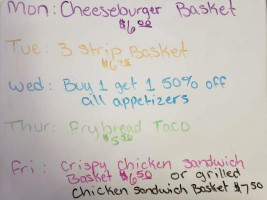 Mon: Cheeseburger Basket
$6.00
Tue: 3 strip Basket
$6.75
Wed: Buy 1 get 1 50% off
all appetizers
Thur: Frybread Taco
$5.50
Fri: Crispy Chicken Sandwich
Basket $6.50 or grilled
Chicken Sandwich Basket $7.50